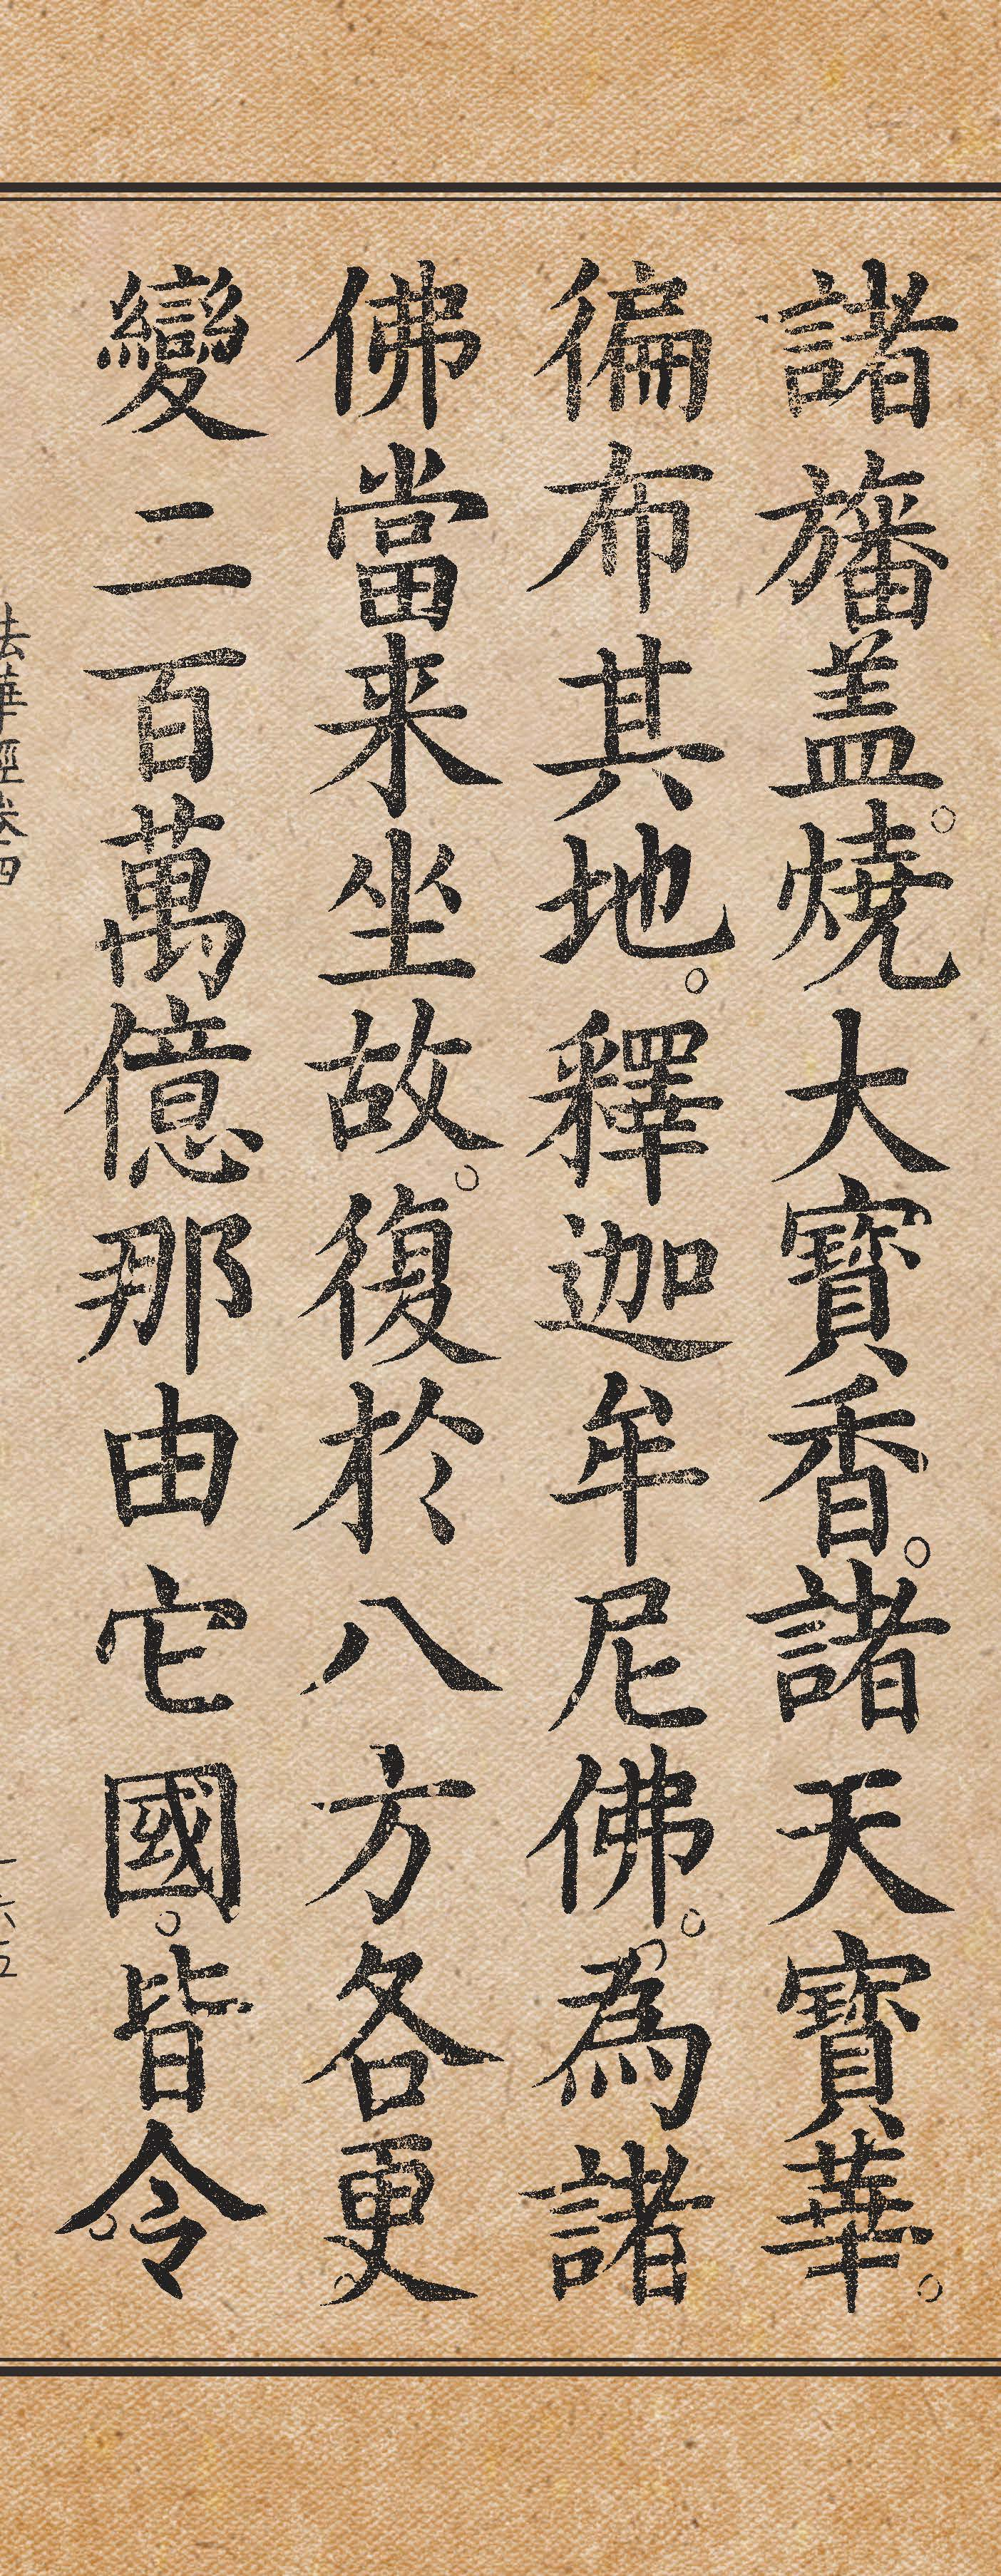 諸旛盖。燒大寶香。諸天寶華。
徧布其地。釋迦牟尼佛。為諸
佛當来坐故。復於八方各更
變二百萬億那由它國。皆令
法華經卷四